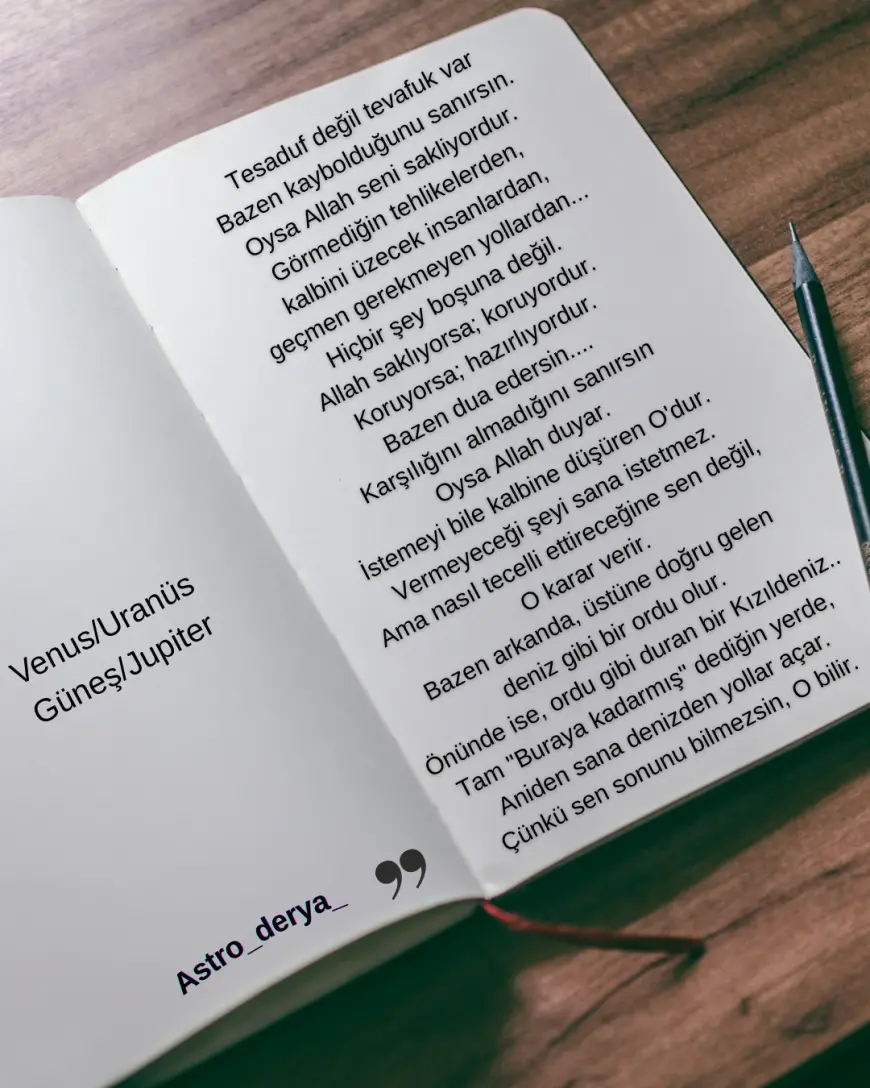 Venus/Uranüs
Güneş/Jupiter
Astro_derya_
”
Tesaduf değil tevafuk var
Bazen kaybolduğunu sanırsın.
Oysa Allah seni sakliyordur.
Görmediğin tehlikelerden,
kalbini üzecek insanlardan,
geçmen gerekmeyen yollardan...
Hiçbir şey boşuna değil.
Allah saklıyorsa; koruyordur.
Koruyorsa; hazırlıyordur.
Bazen dua edersin....
Karşılığını almadığını sanırsın
Oysa Allah duyar.
İstemeyi bile kalbine düşüren O'dur.
Vermeyeceği şeyi sana istetmez.
Ama nasıl tecelli ettireceğine sen değil,
O karar verir.
Bazen arkanda, üstüne doğru gelen
deniz gibi bir ordu olur.
Önünde ise, ordu gibi duran bir Kızıldeniz..
Tam "Buraya kadarmış" dediğin yerde,
Aniden sana denizden yollar açar.
Çünkü sen sonunu bilmezsin, O bilir.